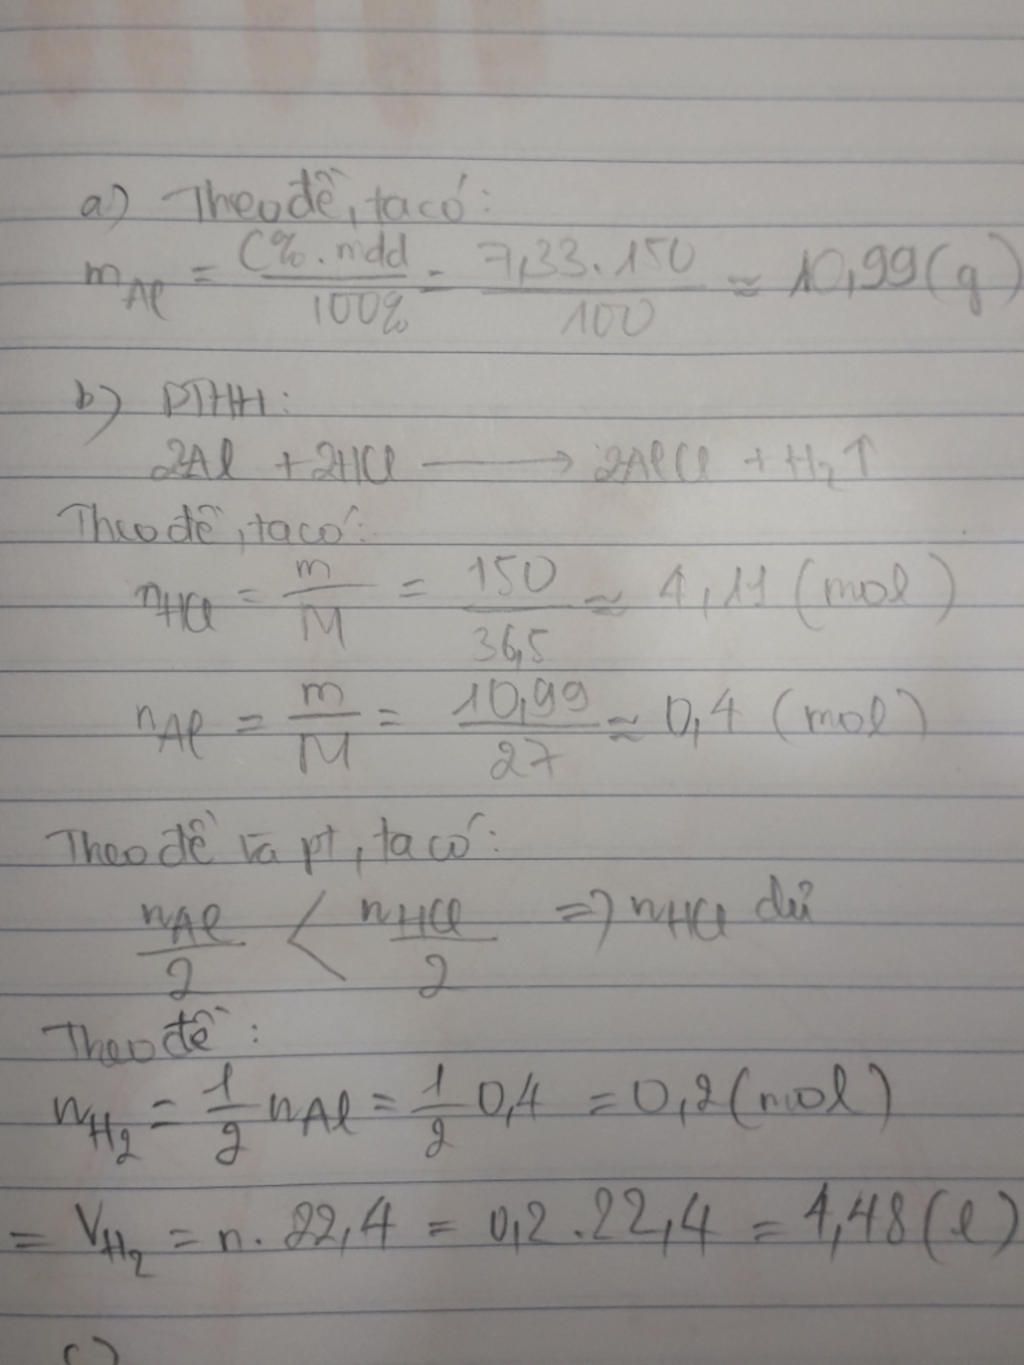 a) Theo đề, ta có:
mAl = C%.mdd/100% = 7,33.150/100 ≈ 10,99(g)
b) PTHH:
2Al + 2HCl ⟶ 2AlCl + H2↑
Theo đề, ta có:
nHCl = m/M = 150/36,5 ≈ 4,11 (mol)
nAl = m/M = 10,99/27 ≈ 0,4 (mol)
Theo đề và pt, ta có:
nAl/2 < nHCl/2 => nHCl dư
Theo đề:
nH2 = 1/2 nAl = 1/2 0,4 = 0,2(mol)
= VH2 = n. 22,4 = 0,2.22,4 = 4,48(l)
c)